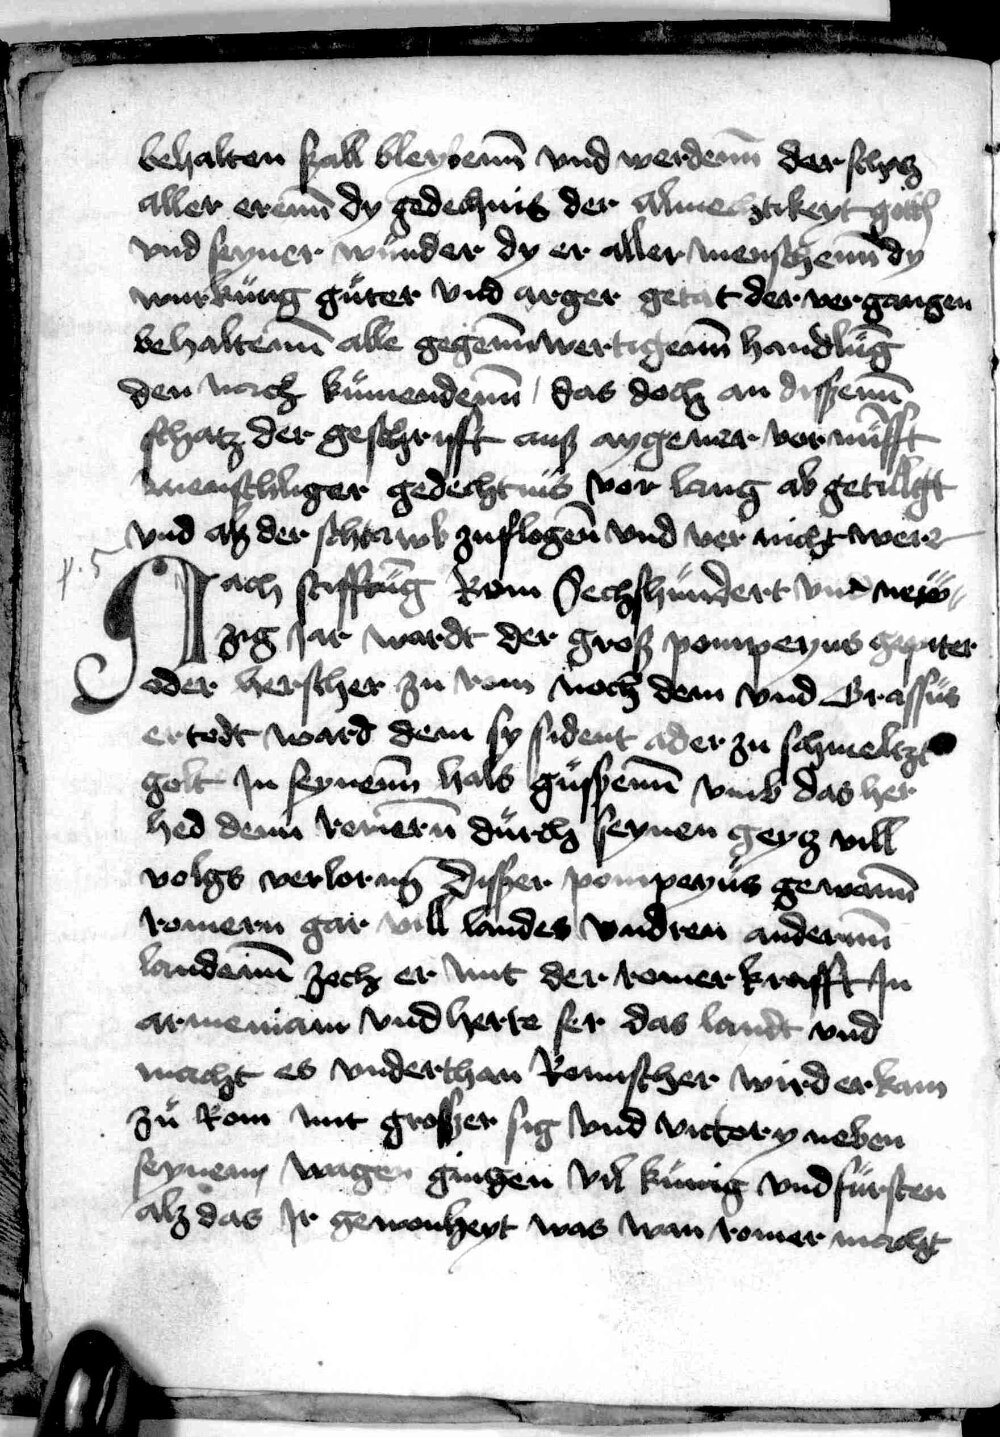 behalten ſzall bleybenn vnd werdenn der ſchatz
aller erenn dy gedechnis der almechtikeyt gotts
vnd ſeyner wunder dy er aller menſchenn dy
wurkung guter vnd arger getat der vergangen
behaltenn alle gegennwertigenn handlung
den nach kumendenn / das doch an diſzenn
ſchatz der geſchryfft auſz aygener vornufft
menſchliger gedechtnis vor lang ab getillgt
vnd alz der ſchtawb zuflogen vnd vernicht were
p. 5
Nach ſtifftung Rom Sechſhundert vnd new⸗
zig Jar wardt der groſz pompeyus
oder herſcher zu rom noch dem vnd Craſſus
ertodt ward dem ſy ſident ader zu ſchmeltzt
golt Jn ſeynenn hals guſſzenn vmb das her
hed denn romern durch ſeynen geytz vill
volgs verlornn Diſzer pompeyus gewann
romern gar vill landes vndren andernn
landenn zoch er mit der romer krafft Jn
armeniam vnd herte ſer das landt vnd
macht es vnderthan Romſcher wird er kam
zu Rom mit groſzer ſig vnd victory neben
ſeynem wagen gingen vil kunig vnd furſten
alz das Jr gewonheyt was wan romer macht